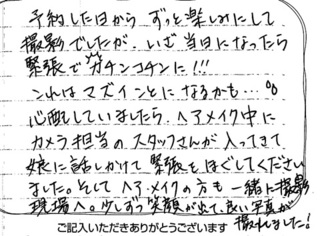 予約した日から ずっと楽しみにして
撮影でしたが、いざ当日になったら
緊張でガチンコチンに!!!
これはマズイことになるかも…。
心配していましたら、ヘアメイク中に
カメラ担当のスタッフさんが入ってきて
娘に話しかけて 緊張を ほぐしてください
ました。そして ヘアメイクの方も 一緒に撮影
現場へ。少しずつ笑顔が出て、良い写真が
撮れました!
ご記入いただきありがとうございます